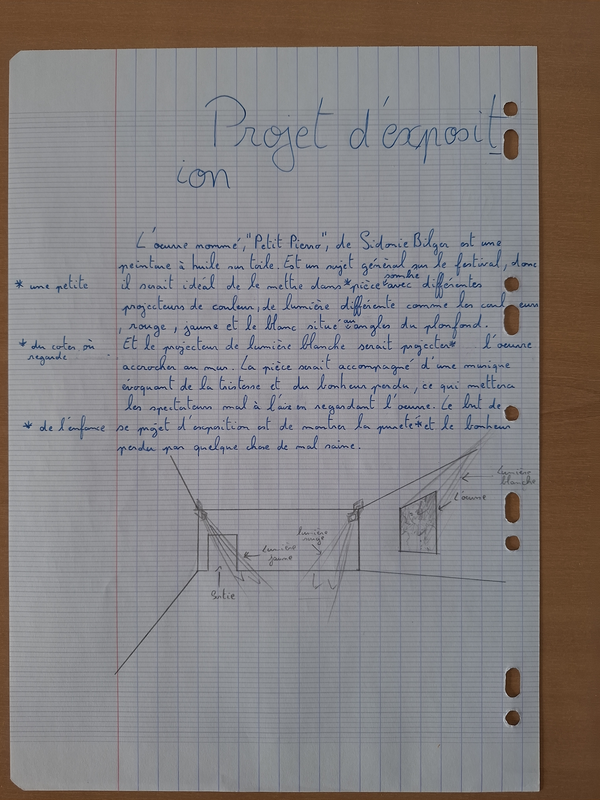 Projet d'exposit
ion
L'œuvre nommé, "Petit Pierro", de Sidonie Bilger est une
peinture à huile sur toile. Est un sujet général sur le festival, donc
* une petite il serait idéal de le mettre dans * pièce sombre avec différentes
projecteurs de couleur, de lumière différente comme les coul eurs
, rouge, jaune et le blanc situé au angles du plonfond.
* du coter où Et le projecteur de lumière blanche serait projecter * l'œuvre
regarde
accrocher au mur. La pièce serait accompagné d'une musique
évoquant de la tristesse et du bonheur perdu, ce qui mettera
les spectateurs mal à l'aise en regardant l'œuvre. Le but de
* de l'enfance se projet d'exposition est de montrer la pureté * et le bonheur
perdu par quelque chose de mal saine.
lumière
blanche
L'œuvre
lumière
rouge
Lumière
jaune
Sortie